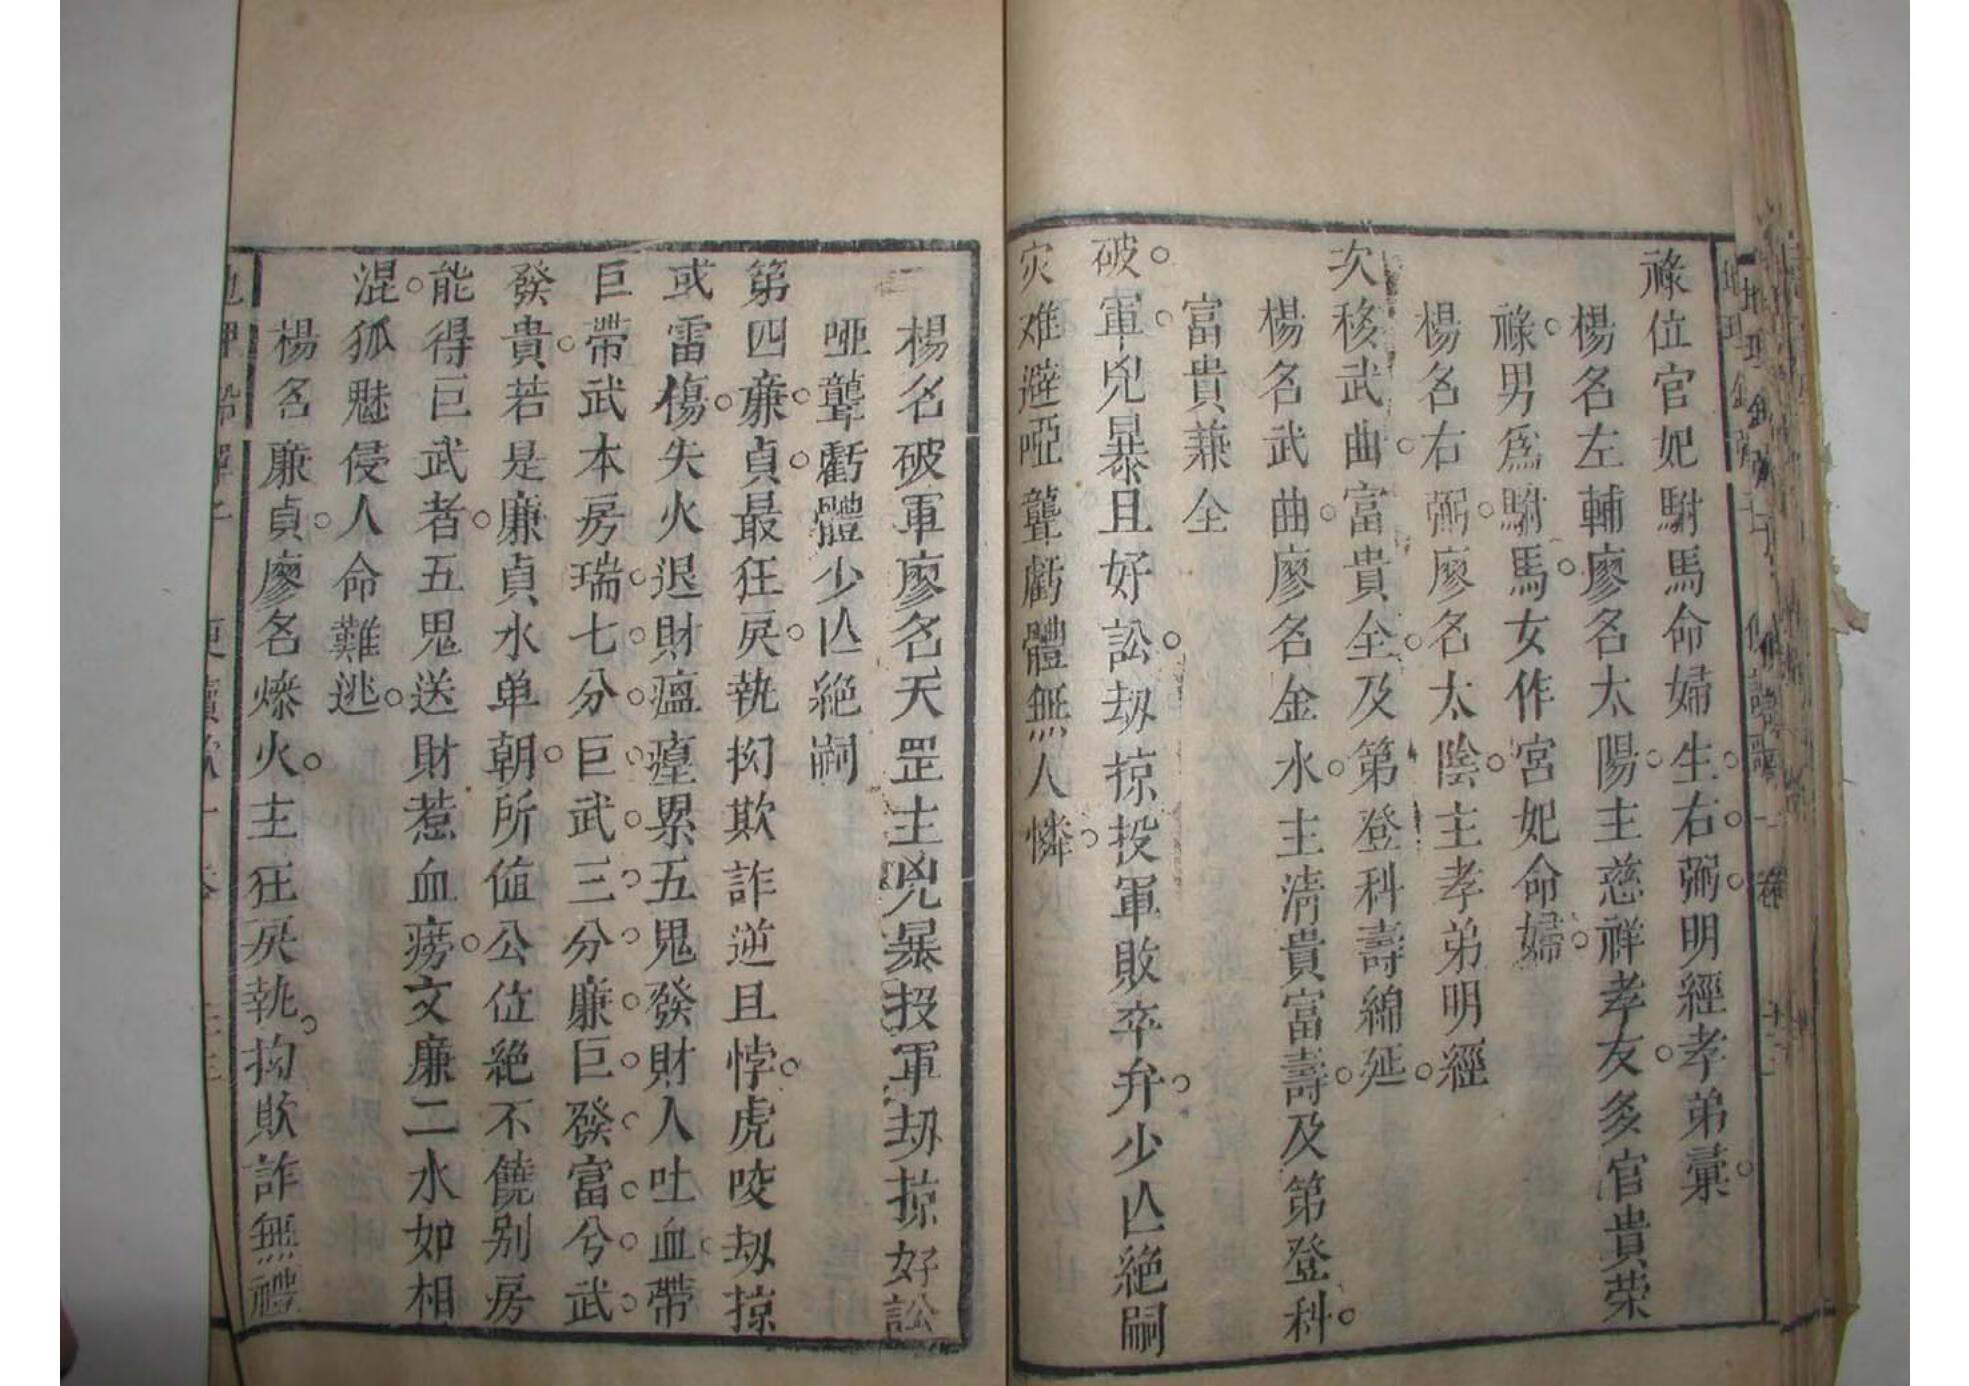 祿位官妃駙馬命婦生右弼明經孝弟彙
楊名左輔廖名太陽主慈祥孝友多官貴荣
祿男爲駙馬女作宮妃命婦
楊名右弼廖名太陰主孝弟明經
次移武曲富貴全及第登科壽綿延
楊名武曲廖名金水主清貴富壽及第登科
富貴兼全
破軍兇暴且好訟刼掠投軍敗卒弁少亾絕嗣
灾难避啞聾虧體無人憐
楊名破軍廖名天罡主兇暴投軍刼掠好訟
啞聾虧體少亾絕嗣
第四亷貞最狂戾執拗欺詐逆且悖虎咬刼掠
或雷傷失火退財瘟㾮累五鬼發財人吐血帶
巨帶武本房瑞七分巨武三分亷巨發富兮武
發貴若是亷貞水单朝所值公位絕不饒别房
能得巨武者五鬼送財惹血痨文亷二水如相
混狐魅侵人命難逃
楊名亷貞廖名燥火主狂戾執拗欺詐無禮